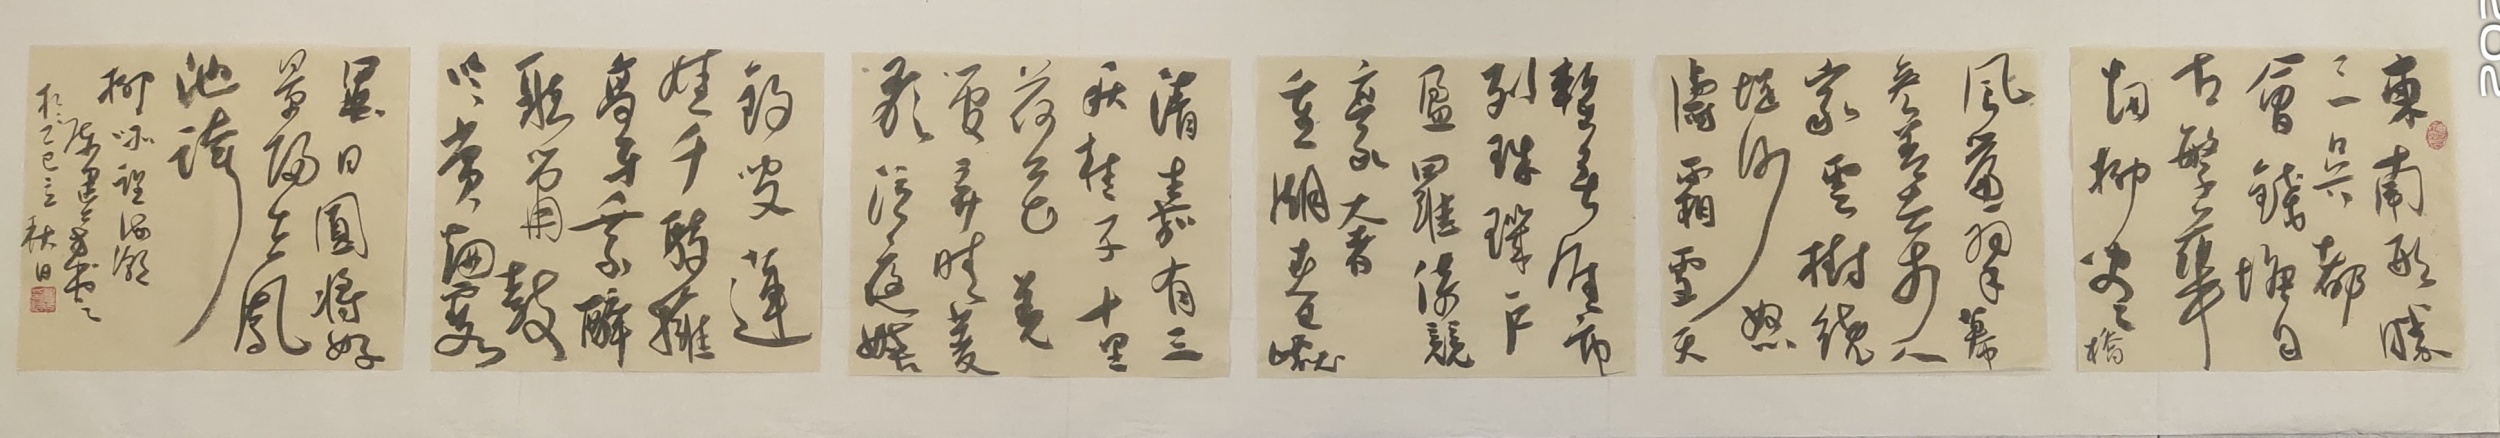 東南形勝
三吳都
會錢塘自
古繁華
烟柳畫橋
風簾翠幕
參差十万人
家雲樹繞
堤沙怒
濤霜雪天
塹無涯市
列珠璣戶
盈羅綺競
豪奢
重湖疊巘
清嘉有三
秋桂子十里
荷花羌
管弄晴菱
歌泛夜嬉嬉
釣叟蓮
娃千騎擁
高牙乘醉
聽簫鼓
吟賞烟霞
異日圖將好
景歸去鳳
池誇
柳永望海潮
陳建書之
於乙巳立秋日
202